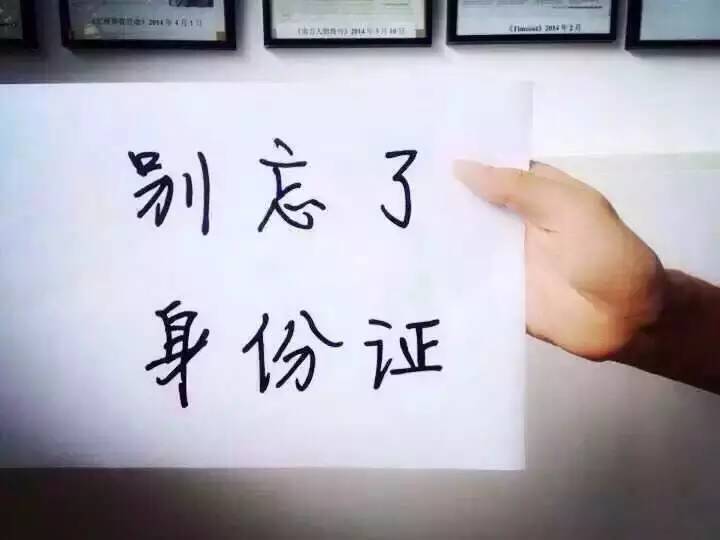 2014年4月1日
2014年3月10日
《Timeout》2014年2月
别忘了
身份证